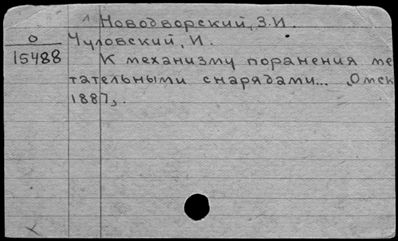 Новодворский, З.И.
О Чуловский, И.
15488 К механизму поранения ме
тательными снарядами... Омск
1887,.